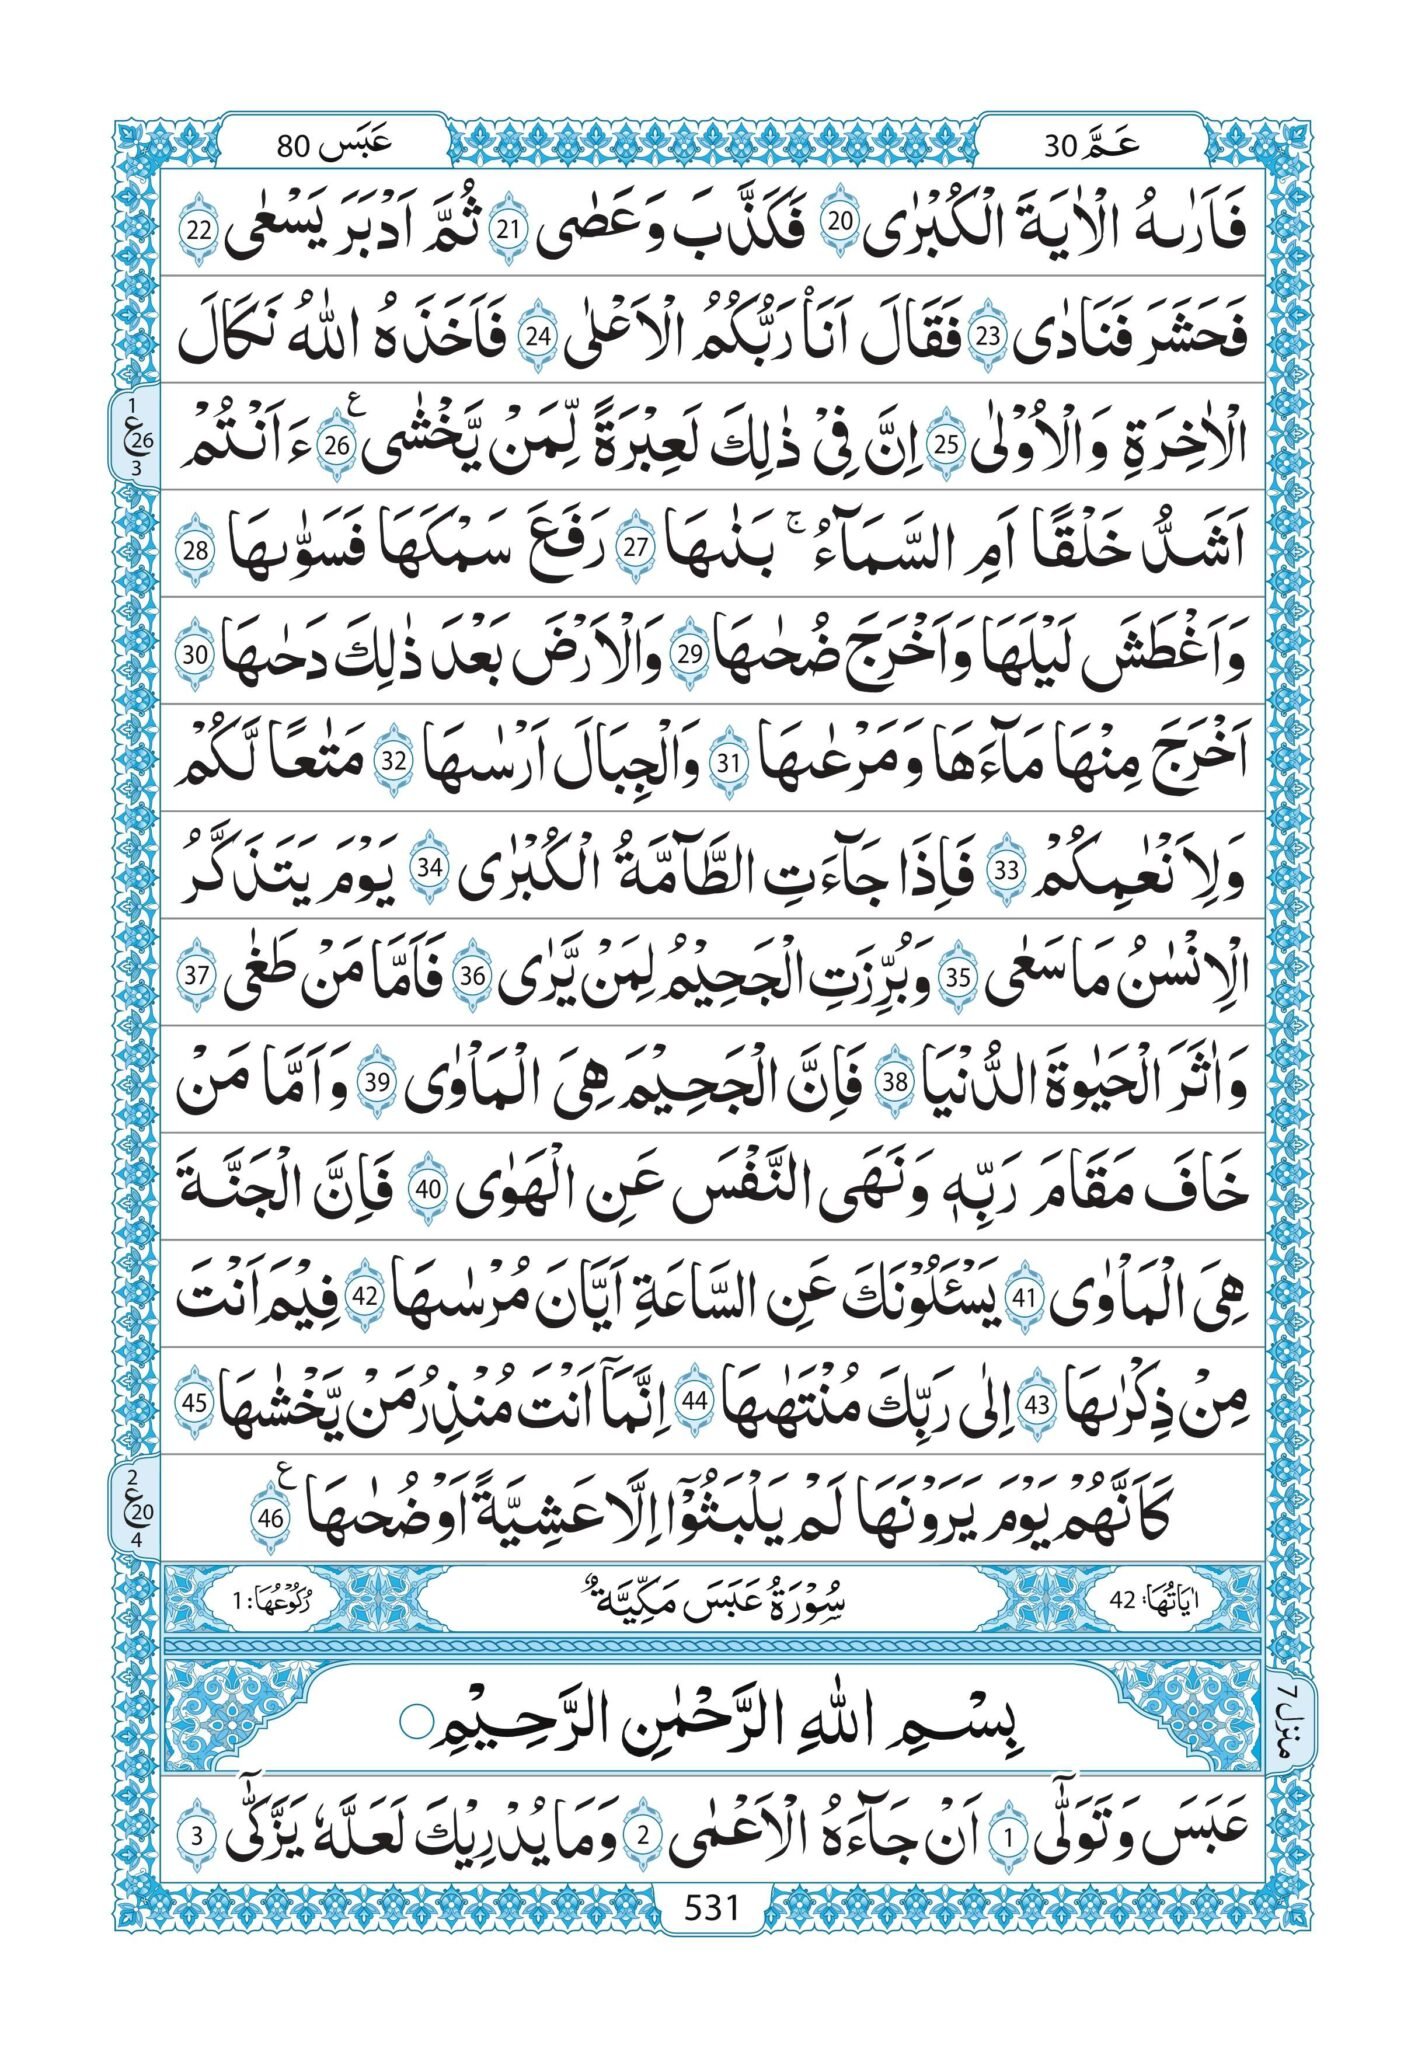 عَمَّ 30
عَبَسَ 80
فَاَرٰىهُ الْاٰيَةَ الْكُبْرٰى 20 فَكَذَّبَ وَعَصٰى 21 ثُمَّ اَدْبَرَ يَسْعٰى 22
فَحَشَرَ فَنَادٰى 23 فَقَالَ اَنَا۠ رَبُّكُمُ الْاَعْلٰى 24 فَاَخَذَهُ اللّٰهُ نَكَالَ
الْاٰخِرَةِ وَالْاُوْلٰى 25 اِنَّ فِيْ ذٰلِكَ لَعِبْرَةً لِّمَنْ يَّخْشٰى ع 26 ءَاَنْتُمْ
1
ع 26
3
اَشَدُّ خَلْقًا اَمِ السَّمَآءُ ۚ بَنٰىهَا 27 رَفَعَ سَمْكَهَا فَسَوّٰىهَا 28
وَاَغْطَشَ لَيْلَهَا وَاَخْرَجَ ضُحٰىهَا 29 وَالْاَرْضَ بَعْدَ ذٰلِكَ دَحٰىهَا 30
اَخْرَجَ مِنْهَا مَآءَهَا وَمَرْعٰىهَا 31 وَالْجِبَالَ اَرْسٰىهَا 32 مَتٰعًا لَّكُمْ
وَلِاَنْعٰمِكُمْ 33 فَاِذَا جَآءَتِ الطَّآمَّةُ الْكُبْرٰى 34 يَوْمَ يَتَذَكَّرُ
الْاِنْسٰنُ مَا سَعٰى 35 وَبُرِّزَتِ الْجَحِيْمُ لِمَنْ يَّرٰى 36 فَاَمَّا مَنْ طَغٰى 37
وَاٰثَرَ الْحَيٰوةَ الدُّنْيَا 38 فَاِنَّ الْجَحِيْمَ هِيَ الْمَاْوٰى 39 وَاَمَّا مَنْ
خَافَ مَقَامَ رَبِّهٖ وَنَهَى النَّفْسَ عَنِ الْهَوٰى 40 فَاِنَّ الْجَنَّةَ
هِيَ الْمَاْوٰى 41 يَسْـَٔلُوْنَكَ عَنِ السَّاعَةِ اَيَّانَ مُرْسٰىهَا 42 فِيْمَ اَنْتَ
مِنْ ذِكْرٰىهَا 43 اِلٰى رَبِّكَ مُنْتَهٰىهَا 44 اِنَّمَآ اَنْتَ مُنْذِرُ مَنْ يَّخْشٰىهَا 45
كَاَنَّهُمْ يَوْمَ يَرَوْنَهَا لَمْ يَلْبَثُوْٓا اِلَّا عَشِيَّةً اَوْ ضُحٰىهَا ع 46
2
ع 20
4
اٰيَاتُهَا: 42
سُوْرَةُ عَبَسَ مَكِّيَّةٌ
رُكُوْعُهَا: 1
بِسْمِ اللّٰهِ الرَّحْمٰنِ الرَّحِيْمِ
منزل 7
عَبَسَ وَتَوَلّٰٓى 1 اَنْ جَآءَهُ الْاَعْمٰى 2 وَمَا يُدْرِيْكَ لَعَلَّهٗ يَزَّكّٰٓى 3
531